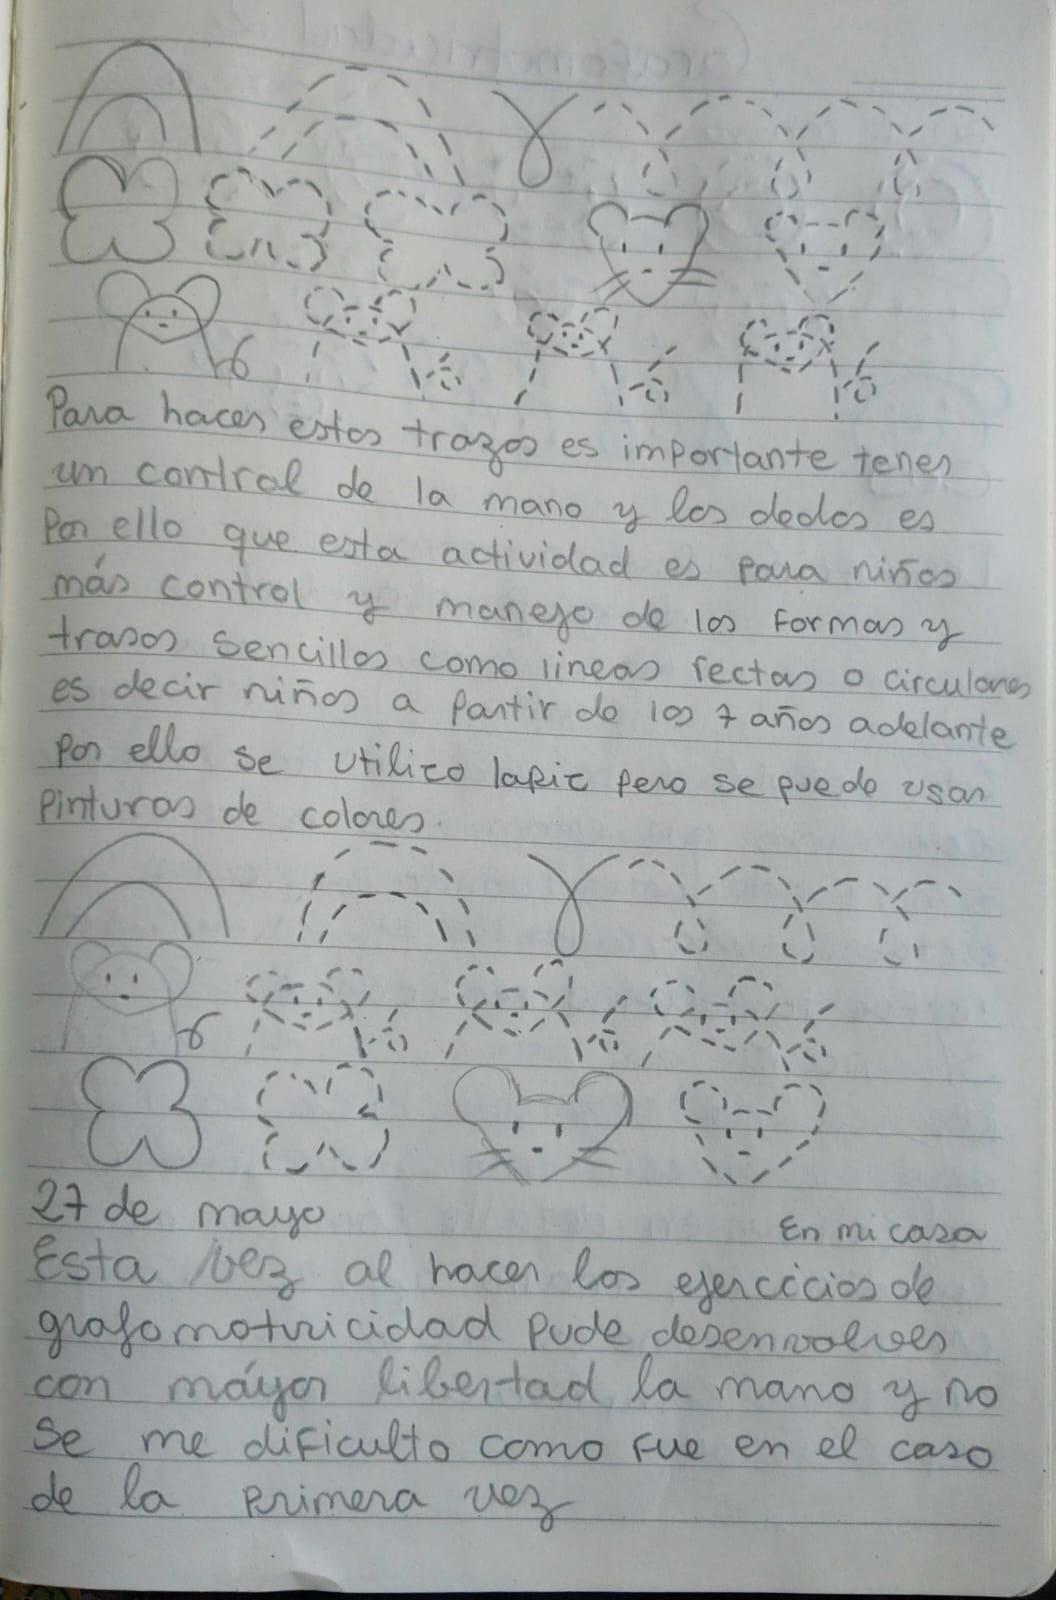 Para hacer estos trazos es importante tener
un control de la mano y los dedos es
Por ello que esta actividad es para niños
más control y manejo de los formas y
trasos sencillos como lineas rectas o circulares
es decir niños a partir de los 7 años adelante
por ello se utilizo lapiz pero se puede usar
Pinturas de colores.
27 de mayo
En mi casa
Esta vez al hacer los ejercicios de
grafomotricidad pude desenvolver
con máyor libertad la mano y no
se me dificulto como fue en el caso
de la primera vez